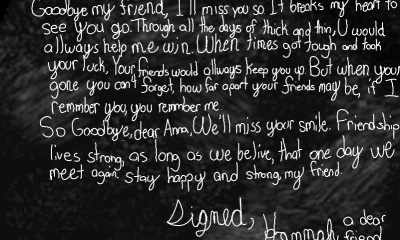 Goodbye my friend, I'll miss you so It breaks my heart to
see you go. Through all the days of thick and thin, U would
allways help me win. When times got tough and took
your luck, Your friends would allways keep you up. But when your
gone you can't forget, how far apart your friends may be, if I
remmber you, you remmber me.
So Goodbye, dear Anna, We'll miss your smile. Friendship
lives strong, as long as we belive, that one day we
meet again. stay happy and strong, my friend.
Signed,
Hannah, a dear
friend